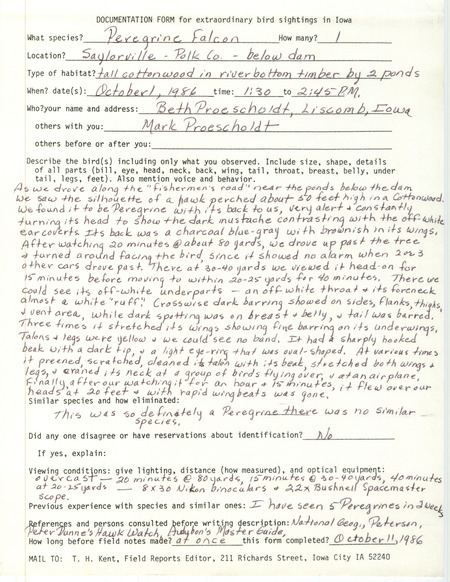 DOCUMENTATION FORM for extraordinary bird sightings in Iowa
What species? Peregrine Falcon How many? 1
Location? Saylorville - Polk Co. - below dam
Type of habitat? tall cottonwood in river bottom timber by 2 ponds
When? date(s): October 1, 1986 time: 1:30 to 2:45 P.M.
Who? your name and address: Beth Proescholdt, Liscomb, Iowa
others with you: Mark Proescholdt
others before or after you:
Describe the bird(s) including only what you observed. Include size, shape, details
of all parts (bill, eye, head, neck, back, wing, tail, throat, breast, belly, under
tail, legs, feet). Also mention voice and behavior.
As we drove along the "fishermen's road" near the ponds below the dam
we saw the silhouette of a hawk perched about 50 feet high in a Cottonwood.
We found it to be Peregrine with its back to us, very alert & constantly
turning its head to show the dark mustache contrasting with the off-white
ear coverts. Its back was a charcoal blue-gray with brownish in its wings.
After watching 20 minutes @ about 80 yards, we drove up past the tree
& turned around facing the bird, since it showed no alarm when 2 or 3
other cars drove past. There at 30-40 yards we viewed it head-on for
15 minutes before moving to within 20-25 yards for 40 minutes. There we
could see its off-white underparts - an off white throat & its foreneck
almost a white "ruff." Crosswise dark barring showed on sides, flanks, thighs,
& vent area, while dark spotting was on breast & belly, & tail was barred.
Three times it stretched its wings showing fine barring on its underwings.
Talons & legs were yellow & we could see no band. It had a sharply hooked
beak with a dark tip, & a light eye-ring that was oval-shaped. At various times
it preened, scratched, cleaned its talon with its beak, stretched both wings &
legs, & craned its neck at a group of birds flying over, & at an airplane.
Finally, after our watching it for an hour & 15 minutes, it flew over our
heads at 20 feet & with rapid wingbeats was gone.
Similar species and how eliminated:
This was so definately a Peregrine there was no similar
species.
Did any one disagree or have reservations about identification? No
If yes, explain:
Viewing conditions: give lighting, distance (how measured), and optical equipment:
overcast - 20 minutes @ 80 yards, 15 minutes @ 30-40 yards, 40 minutes
at 20-25 yards - 8x30 Nikon binoculars & 22x Bushnell Spacemaster
scope.
Previous experience with species and similar ones: I have seen 5 Peregrines in 2 weeks
References and persons consulted before writing description: National Geog., Peterson,
Peter Dunne's Hawk Watch, Audubon's Master Guide,
How long before field notes made? at once this form completed? October 11, 1986
MAIL TO: T. H. Kent, Field Reports Editor, 211 Richards Street, Iowa City IA 52240